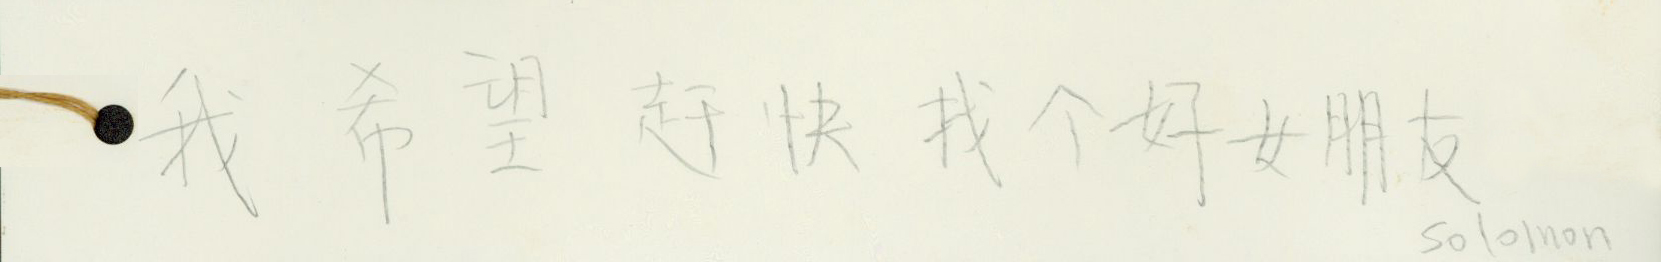 我希望赶快找个好女朋友
Solomon